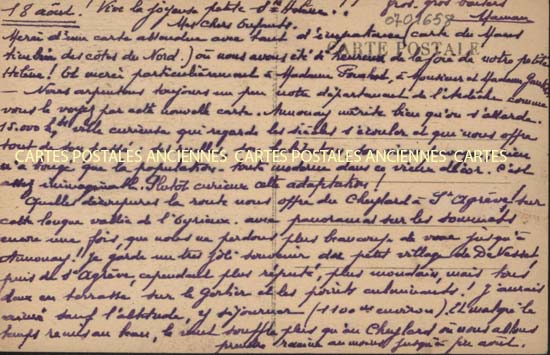 18 août! Vive la joyeuse petite Ste Hélène!!
gros, gros baisers
Maman
0701658
CARTE POSTALE
Mes Chers Enfants.
Merci d'une carte attendue avec tant d'impatience (carte du Mans
timbrée des côtes du Nord.) où nous avons été si heureux de la joie de notre petite
Hélène! Et merci particulièrement à Madame à Monsieur et Madame
— Nous arpentons toujours un peu notre département de l'Ardèche comme
vous le voyez par cette nouvelle carte. Annonay mérite bien qu'on s'attarde.
15.000 hts, ville curieuse qui regarde les siècles s'écouler et que nous offre
CARTES POSTALES ANCIENNES CARTES POSTALES ANCIENNES CARTES
n'a bougé que la population toute moderne dans ce vieux décor. C'est
assez inimaginable. Plutôt curieuse cette adaptation!
Quelle la route nous offre du Cheylard à St Agrève sur
cette longue vallée de l'Eyrieux. avec panoramas sur les sommets
encore une fois, que nous ne perdons plus beaucoup de vue jusqu'à
Annonay! Je garde un très joli souvenir du petit village de
puis de St Agrève, cependant plus réputé, plus mondain, mais tous
deux en terrasse sur le Gerbier et les points culminants! J'aurais
aimé sauf l'altitude, y séjourner (1100 m environ). Et malgré le
temps remis au beau, le vent souffle plus qu'au Cheylard où nous allons
prendre racine au moins jusqu'à fin août.